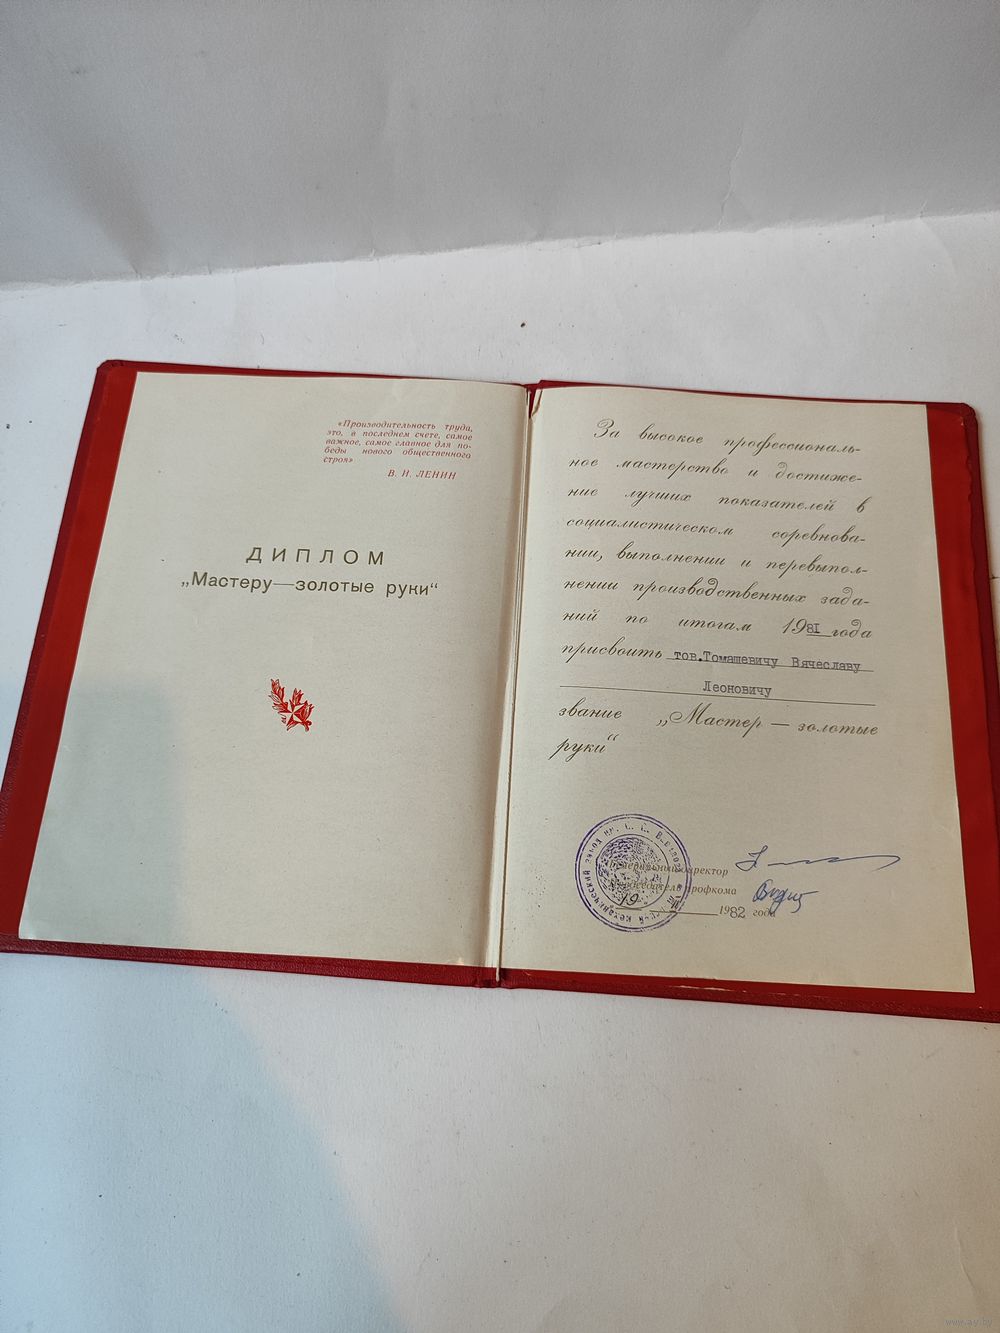 «Производительность труда,
это, в последнем счете, самое
важное, самое главное для по-
беды нового общественного
строя»
В. И. ЛЕНИН
ДИПЛОМ
„Мастеру—золотые руки“
За высокое профессиональ-
ное мастерство и достиже-
ние лучших показателей в
социалистическом соревнова-
нии, выполнении и перевыпол-
нении производственных зада-
ний по итогам 1981 года
присвоить тов.Томашевичу Вячеславу
Леоновичу
звание „Мастер — золотые
руки“
Генеральный директор
Председатель профкома
1982 года
механический завод им. С. И.
www.ay.by